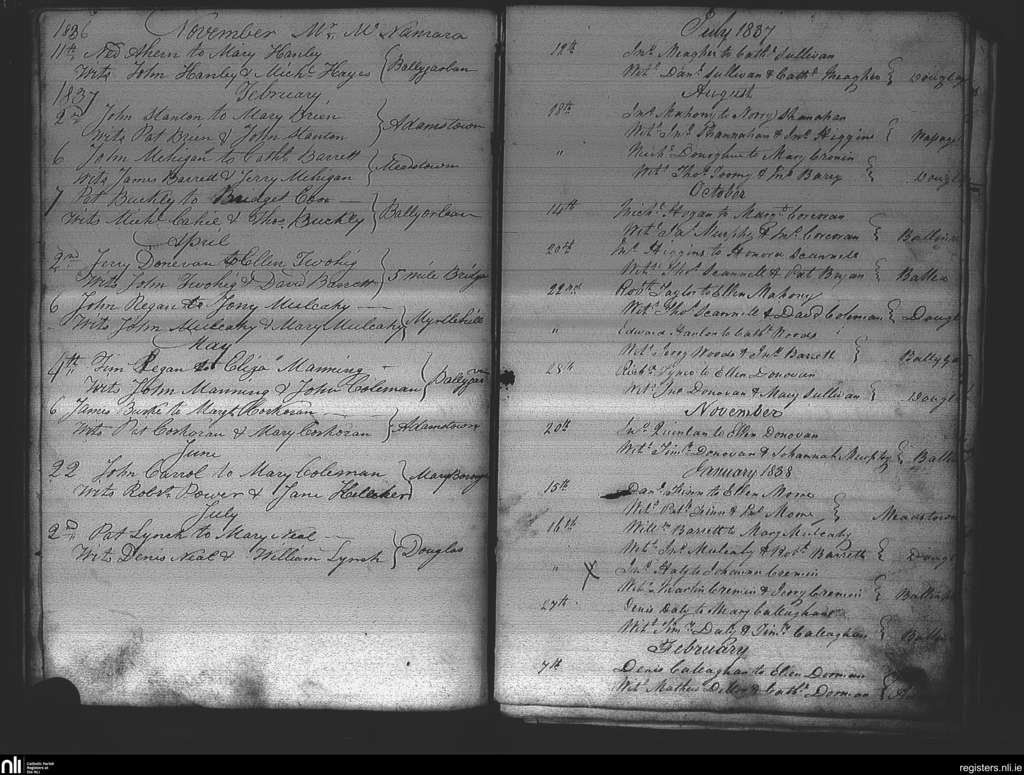 1836 November Mr. McNamara
11th Ned Ahern to Mary Hanley
Wits John Hanley & Michl Hayes } Ballygarban
1837 February
2nd John Stanton to Mary Brien
Wits Pat Brien & John Stanton } Adamstown
6 John Mehigan to Cathe Barrett
Wits James Barred & Jerry Mehigan } Meadstown
7 Pat Buckley to Bridget
Wits Michl Cahil & Thos Buckley } Ballyorban
April
2nd Jerry Donevan to Ellen Twohig
Wits John Twohig & David Barrett } 5 mile Bridge
6 John Regan to Mulcahy
Wits John Mulcahy & Mary Mulcahy } Myrtlehill
May
4th Tim Regan to Eliza Manning
Wits John Manning & John Coleman }
6 James Burke to Margt Corkoran
Wits Pat Corkoran & Mary Corkoran } Adamstown
June
22 John Carrol to Mary Coleman
Wits Robt Power & Jane } Maryborough
July
2nd Pat Lynch to Mary Neal
Wits Denis Neal & William Lynch } Douglas
July 1837
12th Jno Meagher to Cathe Sullivan
Wits Danl Sullivan & Cathe Meagher } Douglas
August
18th Jno Mahony to Norry Shanahan
Wits Jno Shannahan & Jno Higgins } Passage
" Michl Donoghue to Mary Cronin
Wits Thos Toomy & Jno Barry } Dougl
October
14th Michl Hogan to Margt Corcoran
Wits Jas Murphy & Jno Corcoran }
20th Jno Higgins to Honora Scannell
Wits Thos Scannell & Pat Bryan }
22nd Robt Taylor to Ellen Mahony
Wits Thos Scannell & David Coleman } Dougl
" Edward Hanlon to Cathe Woods
Wits Jerry Woods & Jno Barrett }
28th Richd to Ellen Donovan
Wits Jno Donovan & Mary Sullivan } Dougl
November
20th Jno Quinlan to Ellen Donovan
Wits Timy Donovan & Johannah Murphy }
January 1838
15th Danl Frinn to Ellen
Wits Patk Frinn & Pat } Meadstown
16th Willm Barrett to Mary Mulcahy
Wits Jno Mulcahy & Robt Barrett } Dougl
" X Jno Haly to Johanna Cremin
Wits Martin Cremin & Jerry Cremin }
27th Denis Daly to Mary Callaghan
Wits Timy Daly & Timy Callaghan }
February
7th Denis Callaghan to Ellen Dorman
Wits Mathew & Cathe Dorman }
nli Catholic Parish
Registers at
the NLI
registers.nli.ie